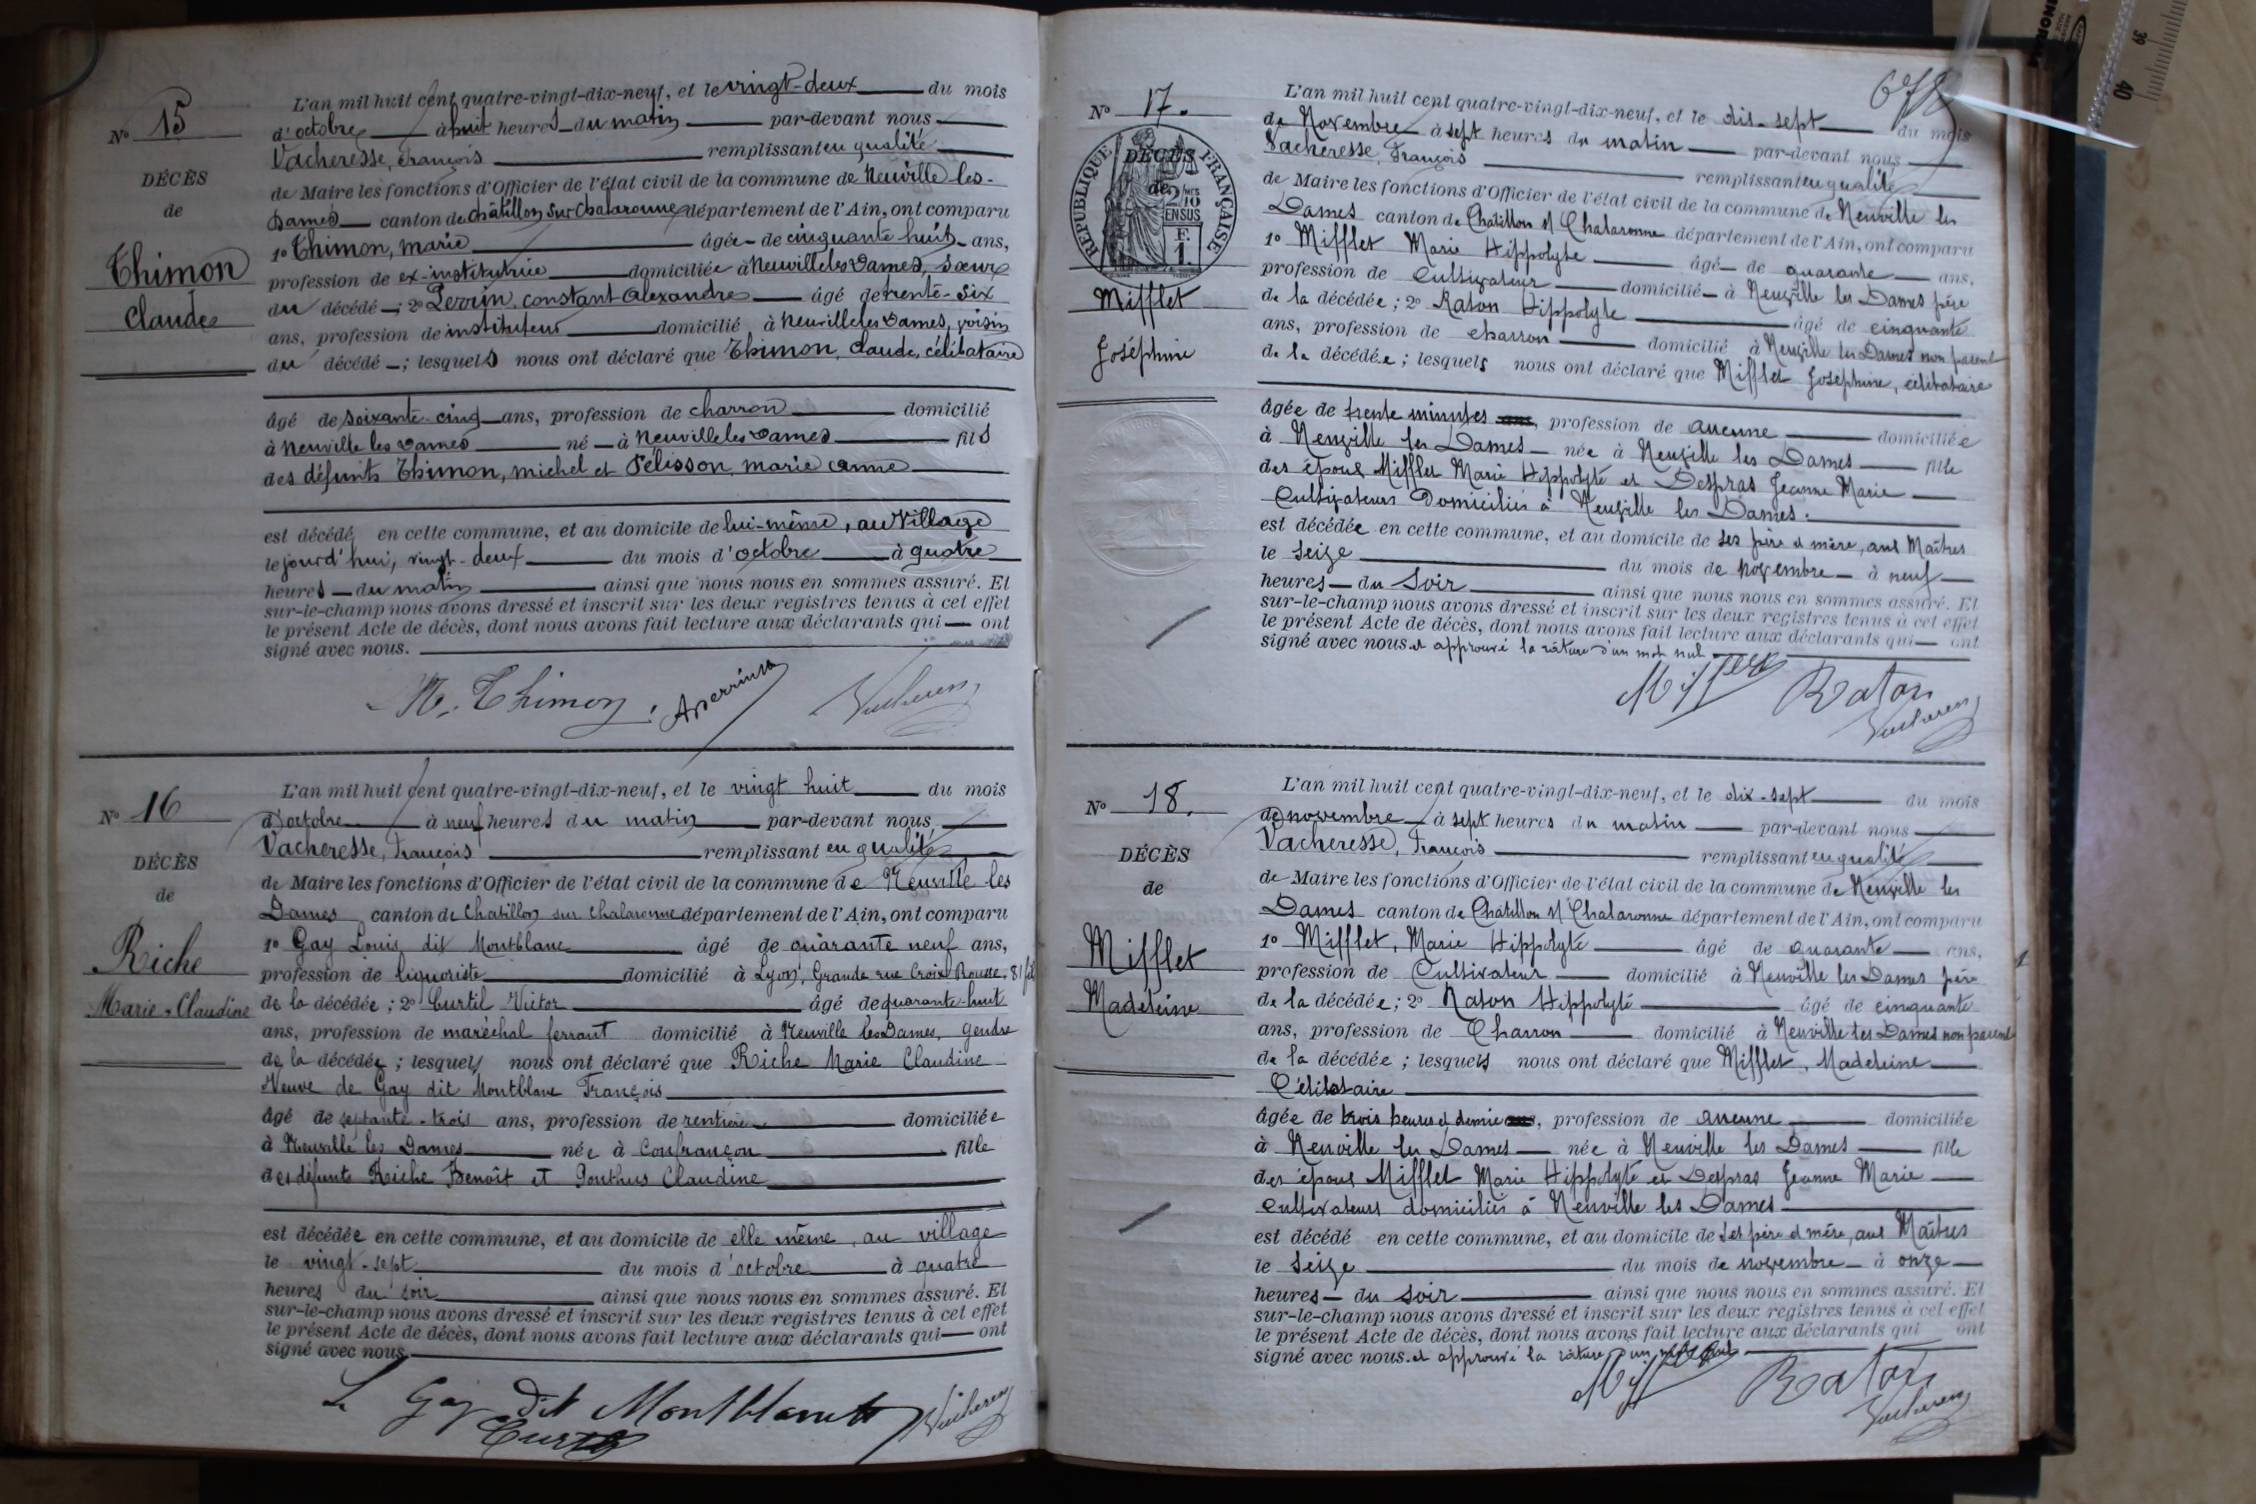 N° 15
DÉCÈS
de
Thimon
Claude
L'an mil huit cent quatre-vingt-dix-neuf, et le vingt-deux du mois
d'octobre à huit heures du matin par-devant nous
Vacheresse, François remplissant en qualité
de Maire les fonctions d'Officier de l'état civil de la commune de Neuville-les-
Dames canton de Châtillon sur Chalaronne département de l'Ain, ont comparu
1o Thimon, marie âgée de cinquante huit ans,
profession de ex-institutrice domiciliée à Neuville les Dames, sœur
du décédé ; 2o Perrin, constant Alexandre âgé de trente-six
ans, profession de instituteur domicilié à Neuville les Dames, voisin
du décédé ; lesquels nous ont déclaré que Thimon, Claude, célibataire
âgé de soixante-cinq ans, profession de charron domicilié
à Neuville les Dames né à Neuville les Dames fils
des défunts Thimon, michel et Pélisson, marie anne
est décédé en cette commune, et au domicile de lui-même, au Village
le jourd'hui, vingt-deux du mois d'octobre à quatre
heures du matin ainsi que nous nous en sommes assuré. Et
sur-le-champ nous avons dressé et inscrit sur les deux registres tenus à cet effet
le présent Acte de décès, dont nous avons fait lecture aux déclarants qui ont
signé avec nous.
M. Thimon A. perrin Vacheresse
N° 16
DÉCÈS
de
Riche
Marie-Claudine
L'an mil huit cent quatre-vingt-dix-neuf, et le vingt huit du mois
d'octobre à neuf heures du matin par-devant nous
Vacheresse, François remplissant en qualité
de Maire les fonctions d'Officier de l'état civil de la commune de Neuville les
Dames canton de Chatillon sur Chalaronne département de l'Ain, ont comparu
1o Gay Louis dit Montblanc âgé de quarante neuf ans,
profession de liquoriste domicilié à Lyon, Grande rue Croix Rousse, 81 fils
de la décédée ; 2o Curtil Victor âgé de quarante-huit
ans, profession de maréchal ferrant domicilié à Neuville les Dames, Gendre
de la décédée ; lesquels nous ont déclaré que Riche Marie Claudine
Veuve de Gay dit Montblanc François
âgé de septante-trois ans, profession de rentière domiciliée
à Neuville les Dames née à Confrançon fille
des défunts Riche Benoît et Ponthus Claudine
est décédée en cette commune, et au domicile de elle même, au village
le vingt-sept du mois d'octobre à quatre
heures du soir ainsi que nous nous en sommes assuré. Et
sur-le-champ nous avons dressé et inscrit sur les deux registres tenus à cet effet
le présent Acte de décès, dont nous avons fait lecture aux déclarants qui ont
signé avec nous
L Gay dit Montblanc Vacheresse
Curtil
N° 17.
RÉPUBLIQUE FRANÇAISE
DÉCÈS
de
2/10
EN SUS
F.
1.
Mifflet
Joséphine
L'an mil huit cent quatre-vingt-dix-neuf, et le dix-sept du mois
de Novembre à sept heures du matin par-devant nous
Vacheresse, François remplissant en qualité
de Maire les fonctions d'Officier de l'état civil de la commune de Neuville les
Dames canton de Chatillon s/ Chalaronne département de l'Ain, ont comparu
1o Mifflet Marie Hippolyte âgé de quarante ans,
profession de Cultivateur domicilié à Neuville les Dames père
de la décédée ; 2o Raton Hippolyte âgé de cinquante
ans, profession de charron domicilié à Neuville les Dames non parent
de la décédée ; lesquels nous ont déclaré que Mifflet Joséphine, célibataire
âgée de trente minutes ans, profession de aucune domiciliée
à Neuville les Dames née à Neuville les Dames fille
des époux Mifflet Marie Hippolyte et Despras Jeanne Marie
Cultivateurs Domiciliés à Neuville les Dames.
est décédée en cette commune, et au domicile de ses père et mère, aux Maîtres
le seize du mois de novembre à neuf
heures du Soir ainsi que nous nous en sommes assuré. Et
sur-le-champ nous avons dressé et inscrit sur les deux registres tenus à cet effet
le présent Acte de décès, dont nous avons fait lecture aux déclarants qui ont
signé avec nous et approuvé la râture d'un mot nul
Mifflet Raton
Vacheresse
N° 18.
DÉCÈS
de
Mifflet
Madeleine
L'an mil huit cent quatre-vingt-dix-neuf, et le dix-sept du mois
de novembre à sept heures du matin par-devant nous
Vacheresse, François remplissant en qualité
de Maire les fonctions d'Officier de l'état civil de la commune de Neuville les
Dames canton de Châtillon s/ Chalaronne département de l'Ain, ont comparu
1o Mifflet, Marie Hippolyte âgé de quarante ans,
profession de Cultivateur domicilié à Neuville les Dames père
de la décédée ; 2o Raton Hippolyte âgé de cinquante
ans, profession de Charron domicilié à Neuville les Dames non parent
de la décédée ; lesquels nous ont déclaré que Mifflet, Madeleine
Célibataire
âgée de trois heures et demie ans, profession de aucune domiciliée
à Neuville les Dames née à Neuville les Dames fille
des époux Mifflet Marie Hippolyte et Despras Jeanne Marie
Cultivateurs domiciliés à Neuville les Dames
est décédé en cette commune, et au domicile de ses père et mère, aux Maîtres
le Seize du mois de novembre à onze
heures du Soir ainsi que nous nous en sommes assuré. Et
sur-le-champ nous avons dressé et inscrit sur les deux registres tenus à cet effet
le présent Acte de décès, dont nous avons fait lecture aux déclarants qui ont
signé avec nous et approuvé la râture d'un mot nul
Mifflet Raton
Vacheresse
39
40